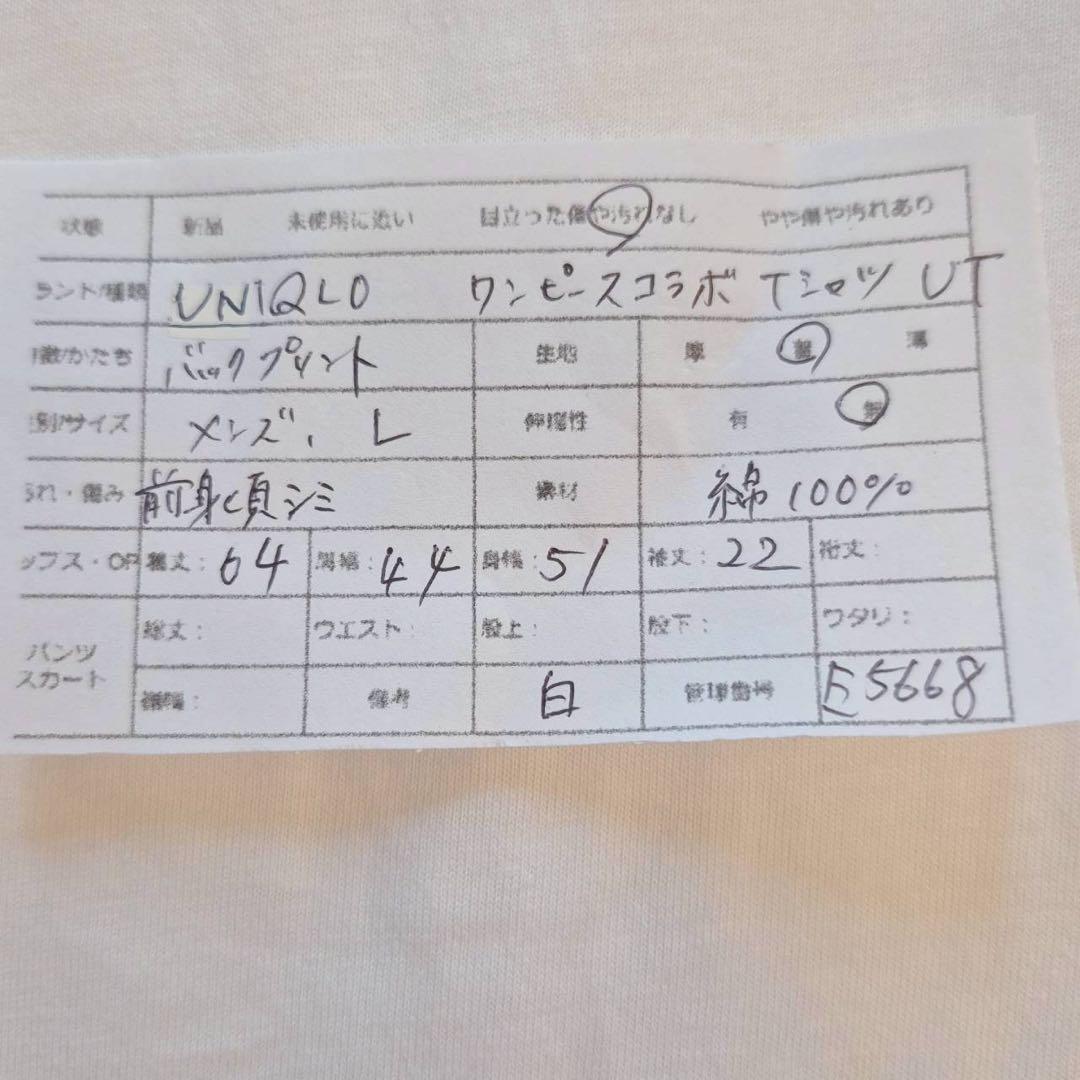 状態 新品 未使用に近い 目立った傷や汚れなし やや傷や汚れあり
ランド/種類 UNIQLO ワンピースコラボ Tシャツ UT
徴/かたち バックプリント 生地 厚 普 薄
別/サイズ メンズ、 L 伸縮性 有 無
れ・傷み 前身頃シミ 素材 綿100%
ップス・OP 着丈: 64 肩幅: 44 身幅: 51 袖丈: 22 裄丈:
パンツ スカート
総丈: ウエスト: 股上: 股下: ワタリ:
裾幅: 備考 白 管理番号 E5668